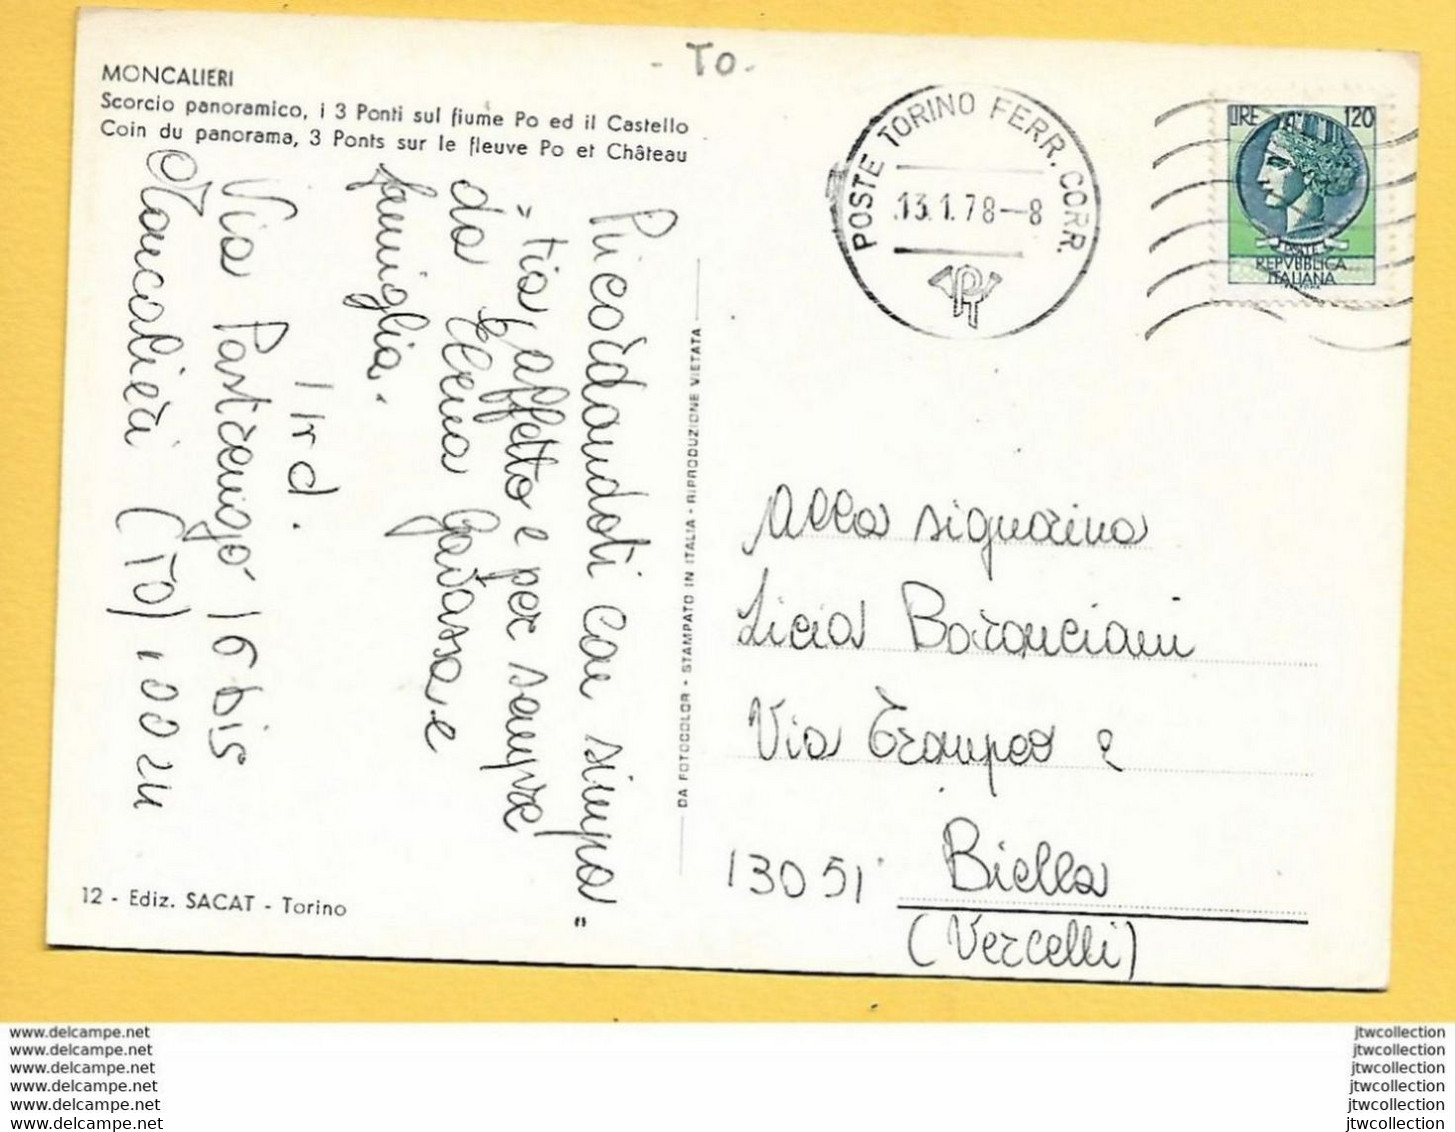 - TO -
MONCALIERI
Scorcio panoramico, i 3 Ponti sul fiume Po ed il Castello
Coin du panorama, 3 Ponts sur le fleuve Po et Château
POSTE TORINO FERR. CORR.
13.1.78-8
PT
LIRE 120
REPVBBLICA
ITALIANA
Ricordandoti con simpa
"tia, affetto e per sempre
da Elena Gavassa e
famiglia.
Ird.
Via Pastrengo 16 bis
Moncalieri (TO) 10024
"
DA FOTOCOLOR - STAMPATO IN ITALIA - RIPRODUZIONE VIETATA
Alla signorina
Licia Boranciani
Via 2
13051 Biella
(Vercelli)
12 - Ediz. SACAT - Torino
www.delcampe.net
www.delcampe.net
www.delcampe.net
www.delcampe.net
www.delcampe.net
www.delcampe.net
jtwcollection
jtwcollection
jtwcollection
jtwcollection
jtwcollection
jtwcollection